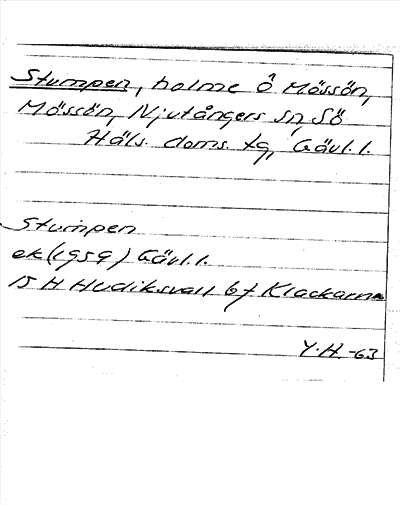 Stumpen, holme Ö Mössön,
Mössön, Njutångers sn, Sö
Häls. doms. tg, Gävl. l.
Stumpen
ek (1959) Gävl. l.
15 H Hudiksvall 6f Klackarna
Y.H. -63